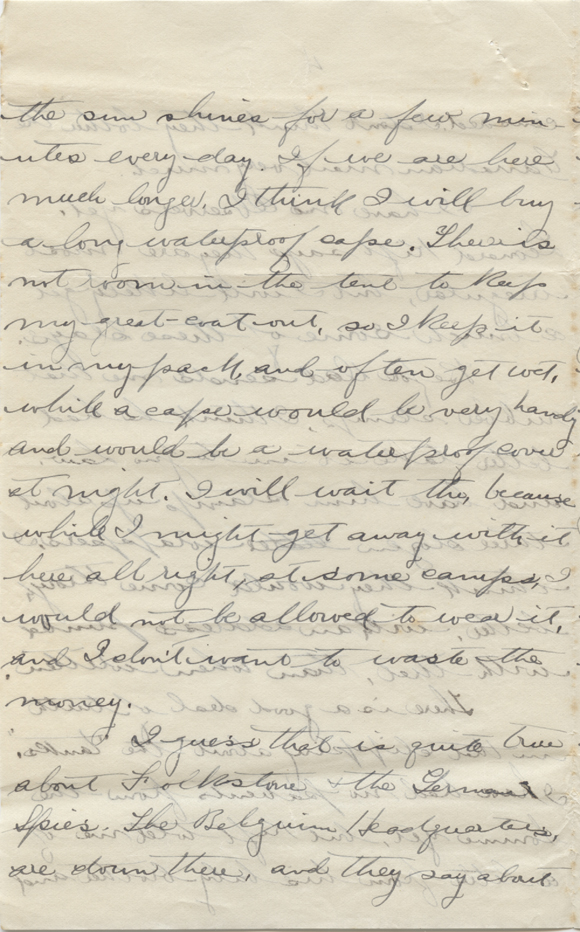 the sun shines for a few min-
utes every day. If we are here
much longer, I think I will buy
a long waterproof cape. There is
not room in the tent to keep
my great-coat out, so I keep it
in my pack, and often get wet,
while a cape would be very handy
and would be a waterproof cover
at night. I will wait tho, because
while I might get away with it
here all right, at some camps, I
would not be allowed to wear it,
and I don't want to waste the
money.
I guess that is quite true
about Folkstone & the German
Spies. The Belguim Headquarters,
are down there, and they say about